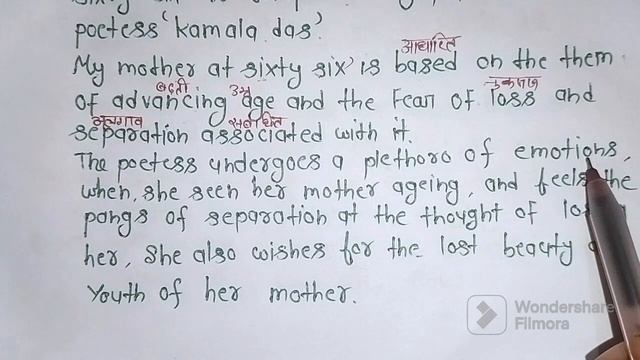 poetess 'kamala das'.
आधारित
My mother at sixty six' is based on the them
बढ़ती उम्र नुकसान
of advancing age and the Fear of loss and
अलगाव संबंधित
separation associated with it.
The poetess undergoes a plethoro of emotions,
when, she seen her mother ageing, and feels the
pangs of separation at the thought of
her, She also wishes for the lost beauty
Youth of her mother.
Wondershare
Filmora